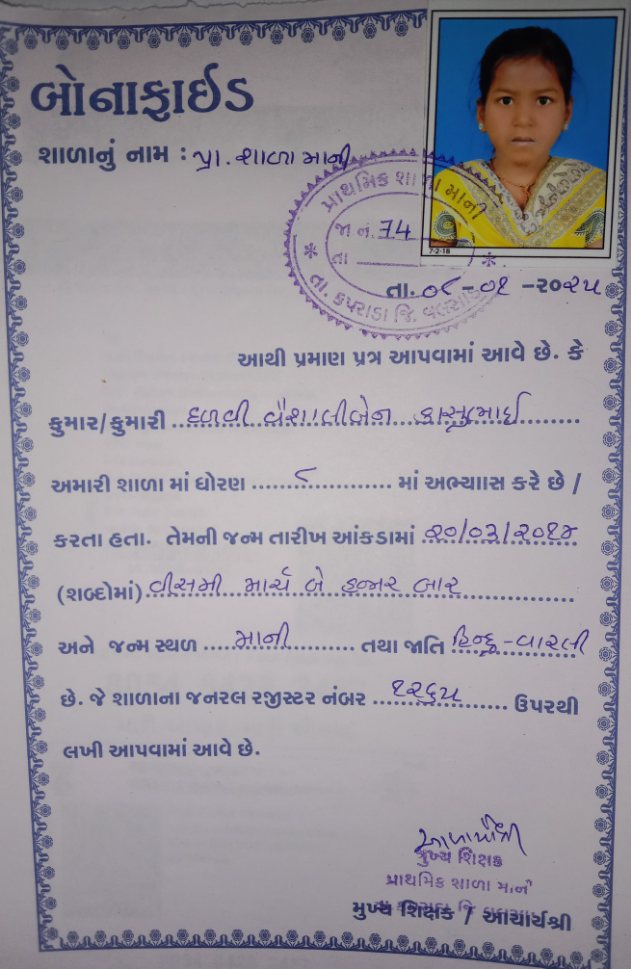 બોનાફાઈડ
શાળાનું નામ : પ્રા. શાળા માની
પ્રાથમિક શાળા માની
જા નં. 74
તા
તા. કપરાડા જિ. વલસાડ
7-2-18
તા. ૦૮-૦૧-૨૦૨૫
આથી પ્રમાણ પત્ર આપવામાં આવે છે. કે
કુમાર/કુમારી દળવી વૈશાલીબેન કાસુભાઈ
અમારી શાળા માં ધોરણ ૮ માં અભ્યાસ કરે છે /
કરતા હતા. તેમની જન્મ તારીખ આંકડામાં ૨૦/૦૩/૨૦૧૨
(શબ્દોમાં) વીસમી માર્ચ બે હજાર બાર
અને જન્મ સ્થળ માની તથા જાતિ હિન્દૂ-વારલી
છે. જે શાળાના જનરલ રજીસ્ટર નંબર ૧૨૬૫ ઉપરથી
લખી આપવામાં આવે છે.
મુખ્ય શિક્ષક
પ્રાથમિક શાળા માની
મુખ્ય શિક્ષક / આચાર્યશ્રી